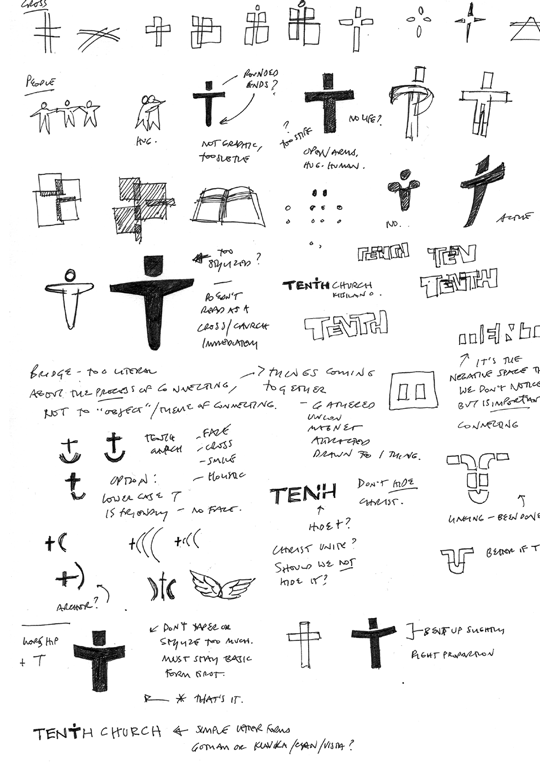 CROSS
PEOPLE
HUG.
ROUNDED
ENDS?
NOT GRAPHIC,
TOO SUBTLE
?
TOO STIFF
NO LIFE?
OPEN ARMS,
HUG. HUMAN.
NO...
ACTIVE
TOO
STYLIZED?
DOESN'T
READ AS A
CROSS/CHURCH
IMMEDIATELY
TENTH
TEN
TENTH
TENTH CHURCH
TENTH
BRIDGE - TOO LITERAL
ABOUT THE PROCESS OF CONNECTING,
NOT TO "OBJECT"/THEME OF CONNECTING.
THINGS COMING
TOGETHER
- GATHERED
UNION
MAGNET
ATTRACTED
DRAWN TO 1 THING.
IT'S THE
NEGATIVE SPACE TH
WE DON'T NOTICE
BUT IS IMPORTANT
CONNECTING
TENTH
CHURCH
- FACE
- CROSS
- SMILE
- HOLISTIC
OPTION:
LOWER CASE T
IS FRIENDLY - NO FACE.
TENTH
DON'T HIDE
CHRIST.
HIDE t?
CHRIST UNITE?
SHOULD WE NOT
HIDE IT?
LINKING -
BETTER IF T
ANCHOR?
WORSHIP
+ T
DON'T TAPER OR
STYLIZE TOO MUCH.
MUST STAY BASIC
FORM FIRST.
* THAT'S IT.
BENT UP SLIGHTLY
RIGHT PROPORTION
TENTH CHURCH
SIMPLE LETTER FORMS
GOTHAM OR KLAVIKA/ /VISTA?